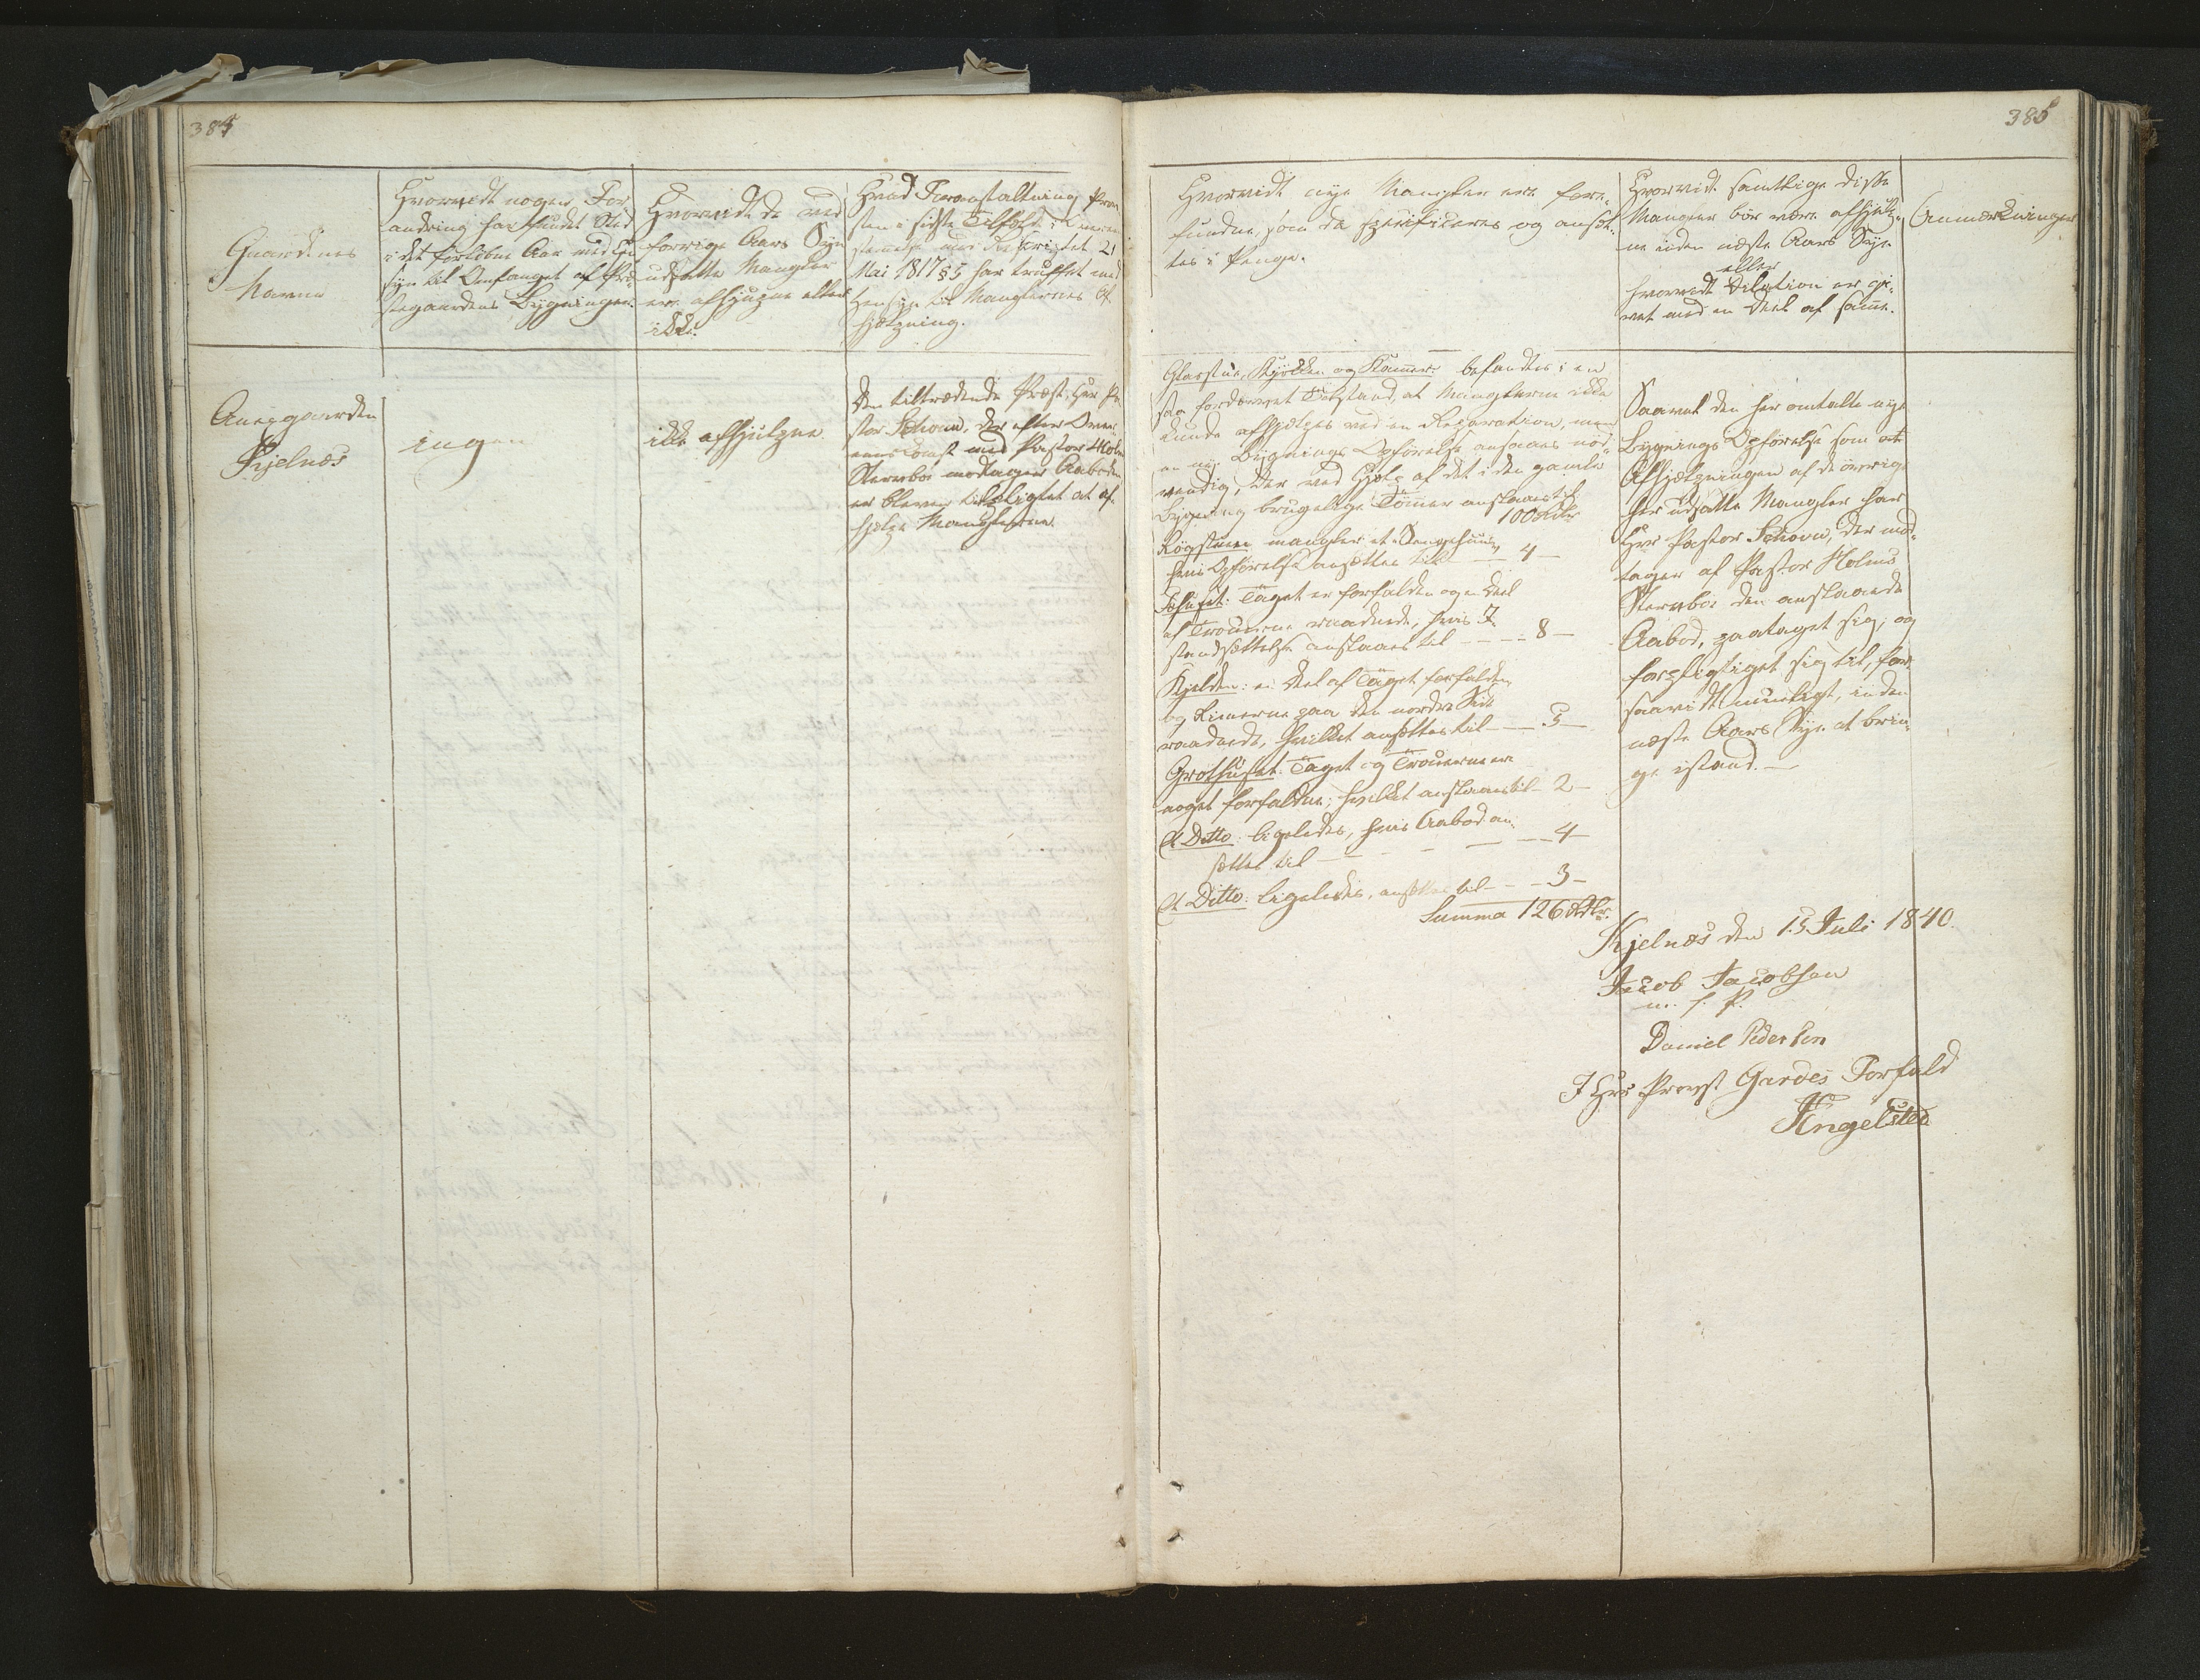 384
Gaardenes
Navne
Hvorvidt nogen For
andring har fundet Sted
i det forløbne Aar med Hen
syn til Omfanget af Præ
stegaardens Bygninger.
Hvorvidt de ved
forrige Aars Syn
udsatte Mangler
ere afhjulpne eller
ikke.
Hvad Foranstaltning Prov
sten i sidste Tilfælde i
Rescriptet 21
Mai 1817 § 5 har truffet med
Hensyn til Manglernes Af
hjælpning.
Annexgaarden
Kjelnæs
ingen
ikke afhjulpne
Den tiltrædende Præst, Herr Pa
stor Schown, der efter Over
eenskomst med Pastor Holm
Stenersbøe modtager Aaboden
er bleven tilpligtet at af
hjelpe Manglerne.
385
Hvorvidt nye Mangler ere fore-
fundne, som da specificeres og ansæt-
tes i Penge.
Hvorvidt samtlige disse
Mangler bør være afhjulp-
ne inden næste Aars Syn
eller
hvorvidt Dilation er gi-
vet med en Deel af samme.
Anmærkninger
Glasstue, Kjøkken og Kammer: befandtes i en
saa fordærvet Tilstand, at Manglerne ikke
kunde afhjelpes ved en Reparation, men
en nye Bygnings Opførelse ansaaes nød-
vendig, der ved Hjelp af det i den gamle
Bygning brugelige Tømmer anslaaes til
100 Rdlr
Røgstuen mangler et
hvis Opførelse ansættes til — 4 —
Fæhuset: Taget er forfalden og en Deel
af Trouerne raadnede, hvis I-
standsættelse anslaaes til — — — 8 —
Kjelden: en Deel af Taget forfalden
og Rimerne paa den nordre Side
raadnede, hvilket ansættes til — — 5 —
Grothuset: Taget og Trouerne ere
noget forfaldne; hvilket anslaaes til — 2 —
Et Ditto: ligeledes, hvis Aabod an-
sættes til — — — — — 4 —
Et Ditto: ligeledes, ansættes til — — 3 —
Summa 126 Rdlr.
Saavel den her omtalte nye
Bygnings Opførelse som at
Afhjælpningen af de øvrige
her udsatte Mangler har
Herr Pastor Schown, der mod-
tager af Pastor Holms
Stervbøe den anslaaede
Aabod, paataget sig, og
forpligtiget sig til, for-
saavidt mueligt, inden
næste Aars Syn at brin-
ge istand. —
Kjelnæs den 15 Juli 1840.
Jacob Jacobsen
m. f. P.
Daniel Pedersen
I Hrr Provst Gardes Forfald
Engelsted